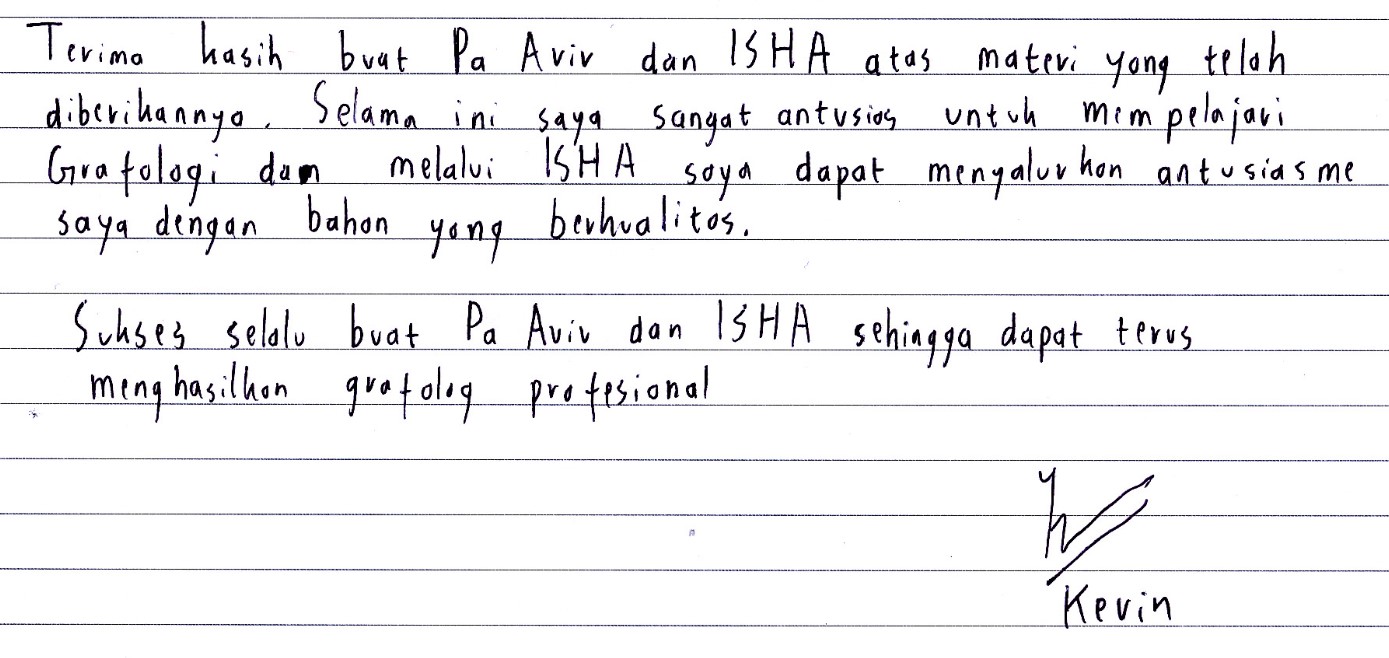 Terima kasih buat Pa Aviv dan ISHA atas materi yang telah
diberikannya. Selama ini saya sangat antusias untuk mempelajari
Grafologi dan melalui ISHA saya dapat mengalurkan antusiasme
saya dengan bahan yang berkualitas.
Sukses selalu buat Pa Aviv dan ISHA sehingga dapat terus
menghasilkan grafolog profesional
Kevin